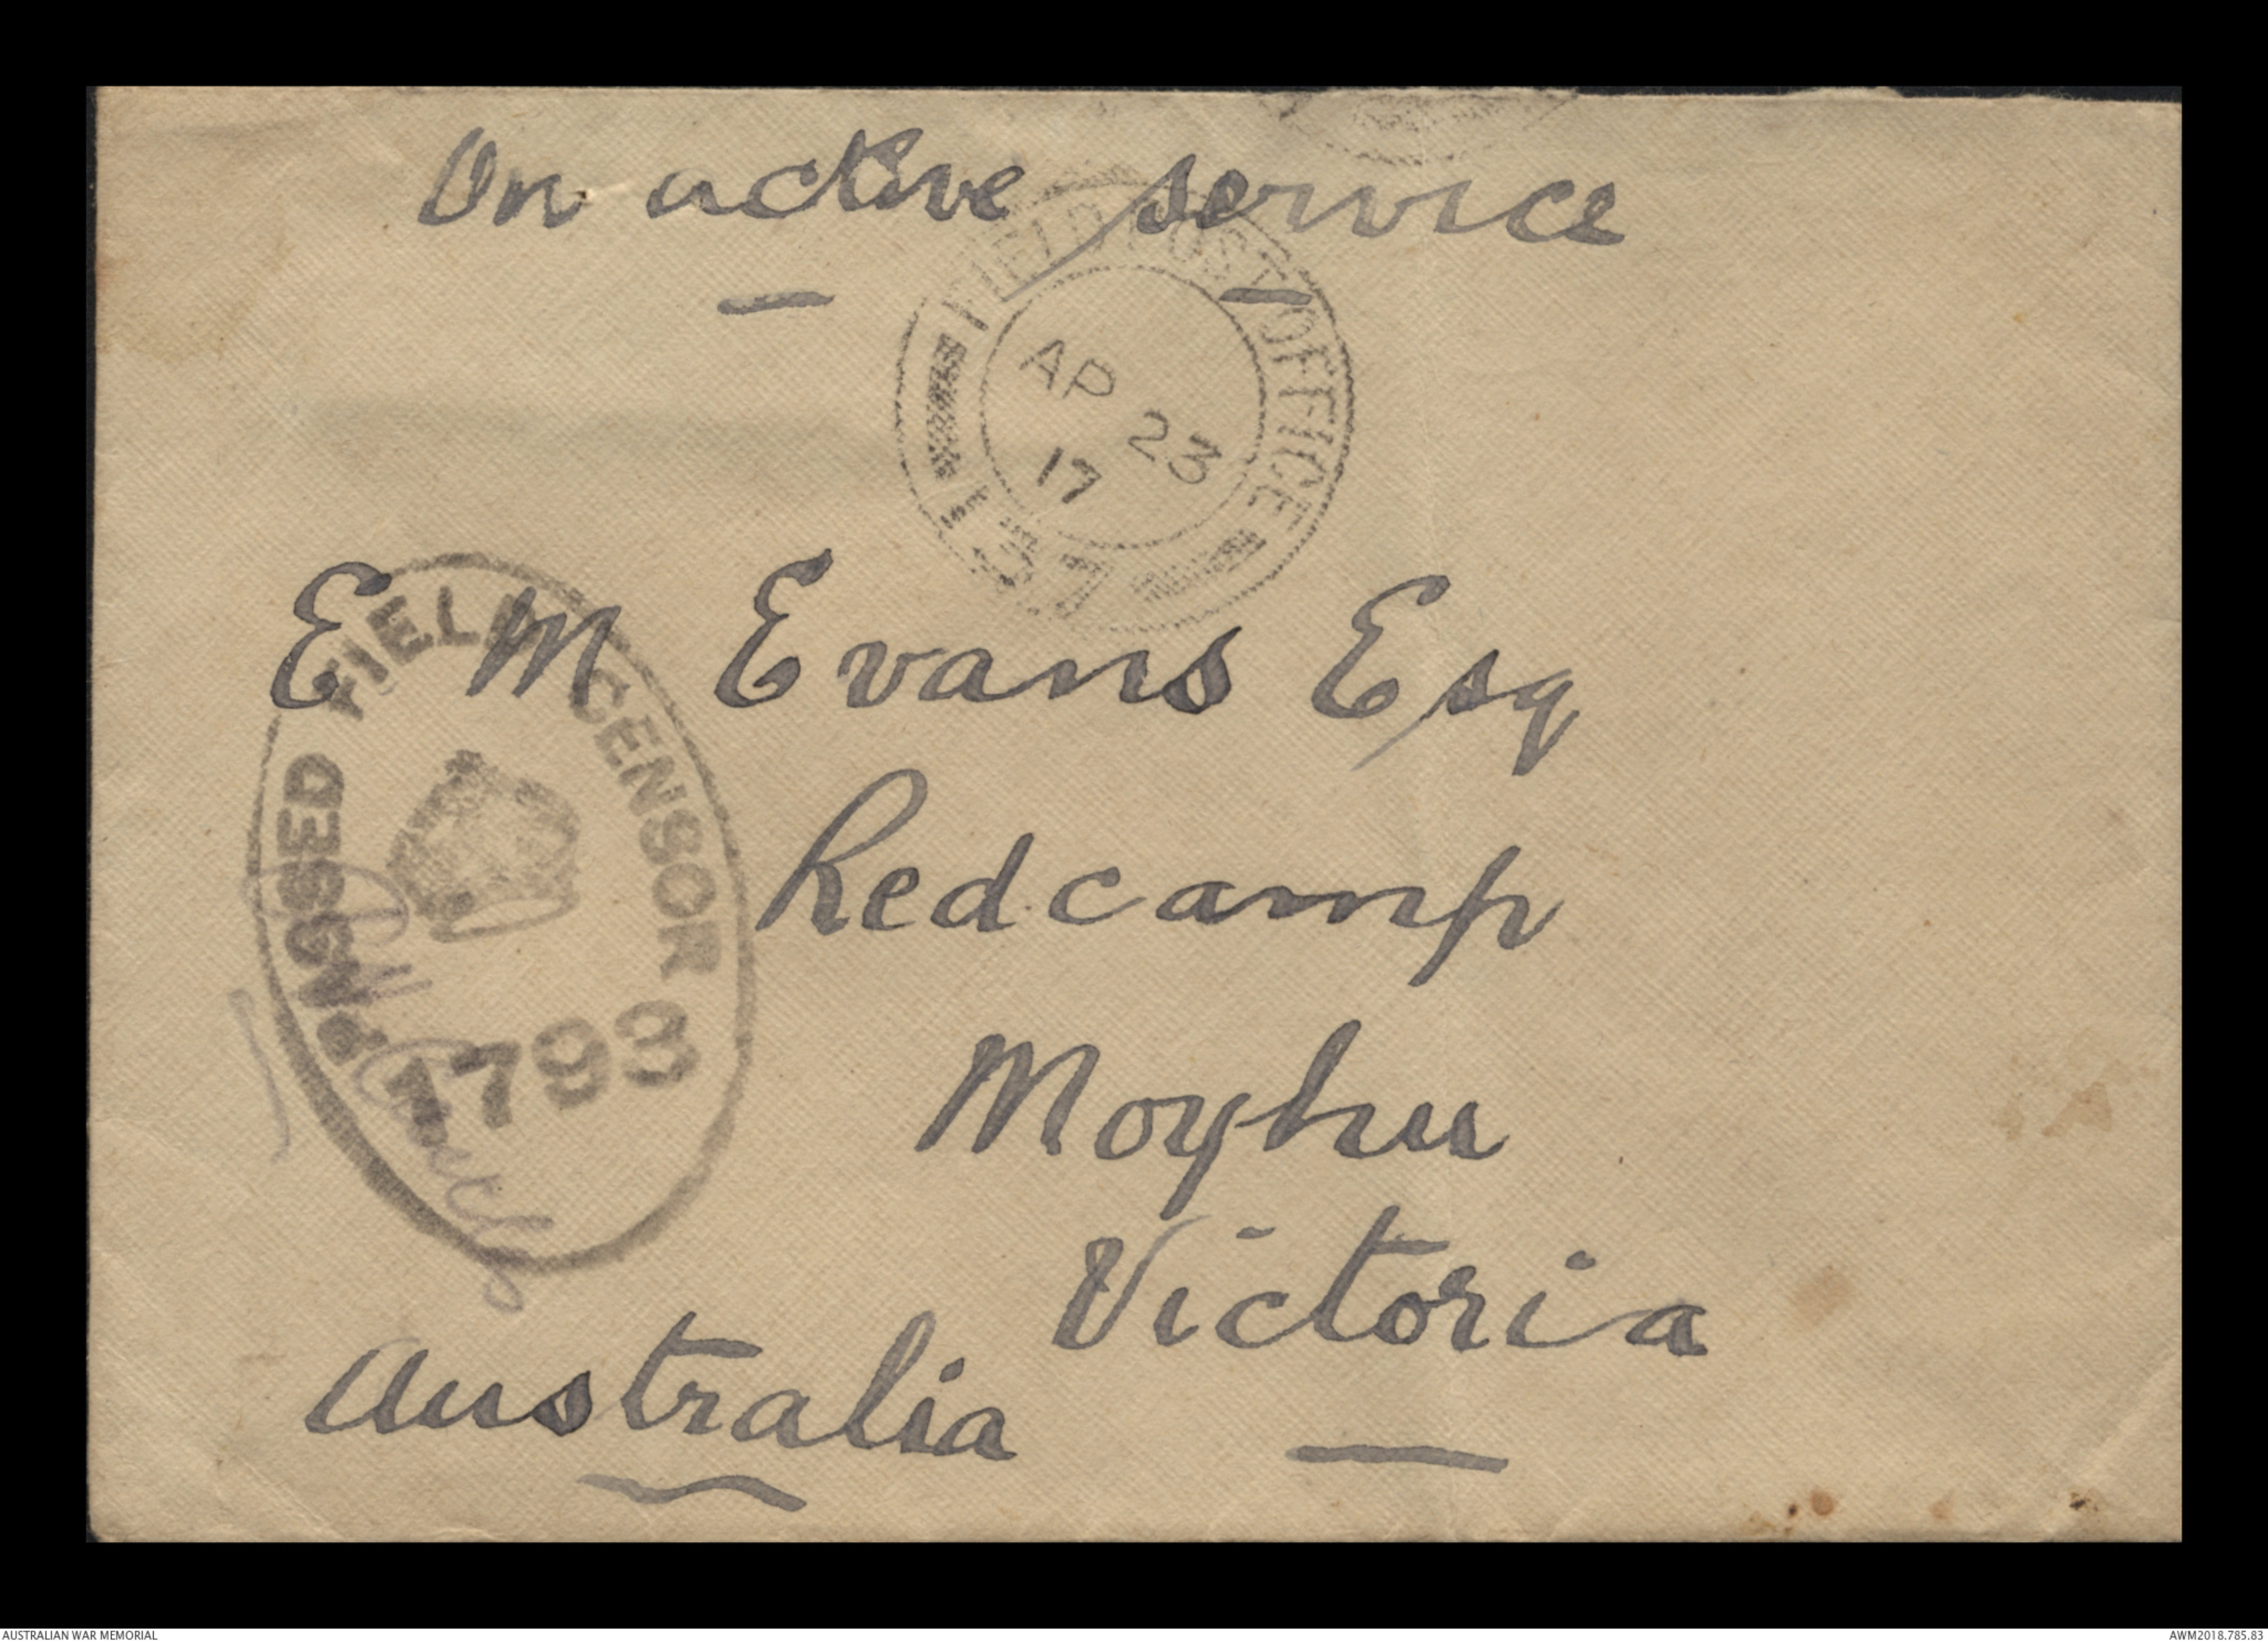 On active service
FIELD POST OFFICE
AP 23
17
137
E M Evans Esq
PASSED FIELD CENSOR
1793
Redcamp
Moyhu
Victoria
Australia
AUSTRALIAN WAR MEMORIAL
AWM2018.785.83